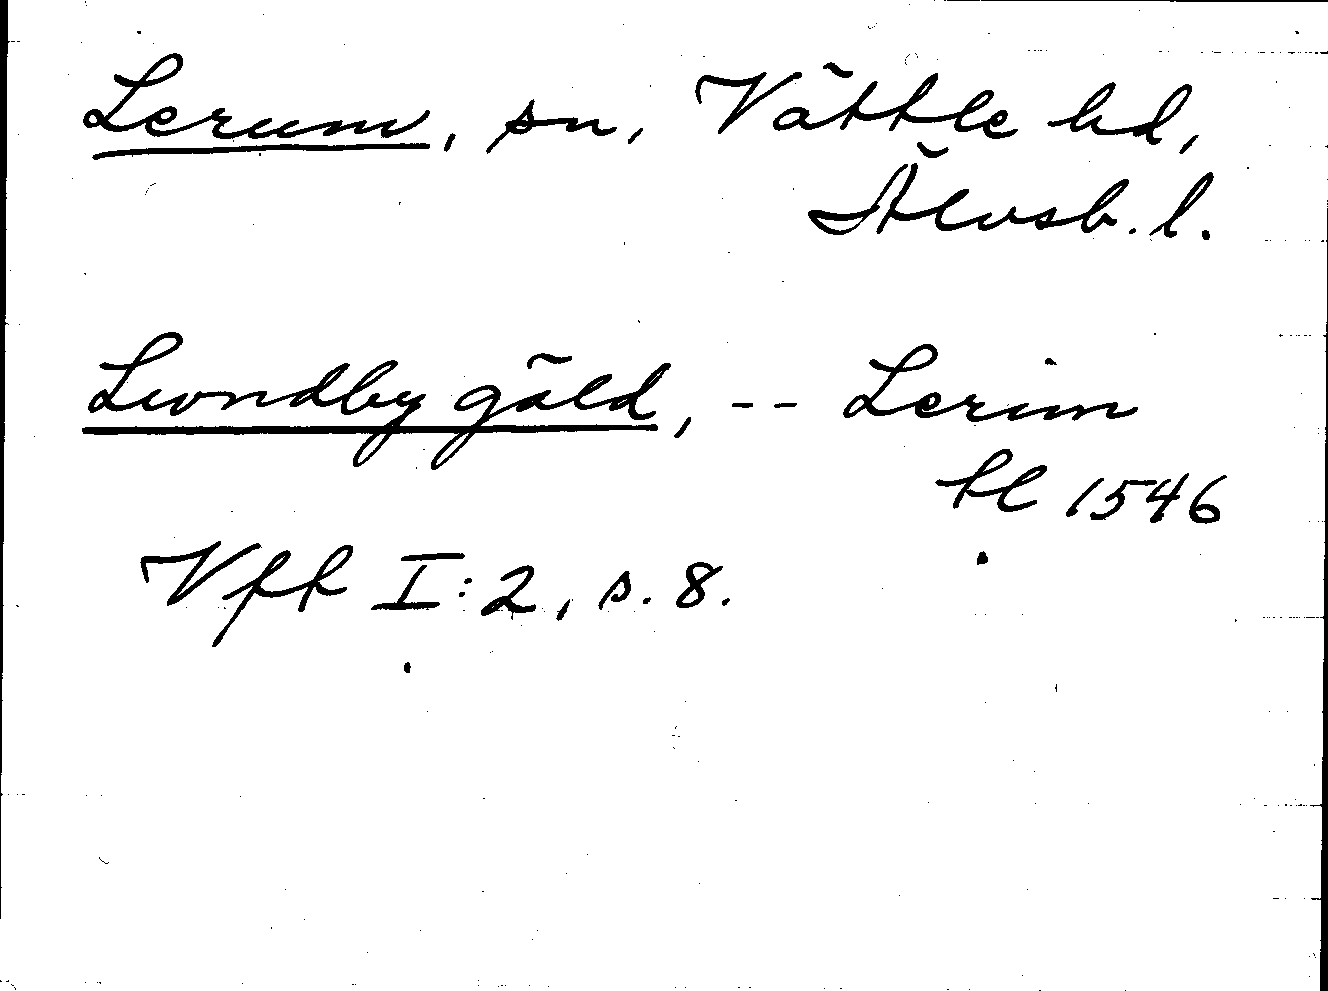 Lerum, sn, Vättle hd,
Älvsb. l.
Lwndby gäld, -- Lerim
tl 1546
Vfk I:2, s. 8.